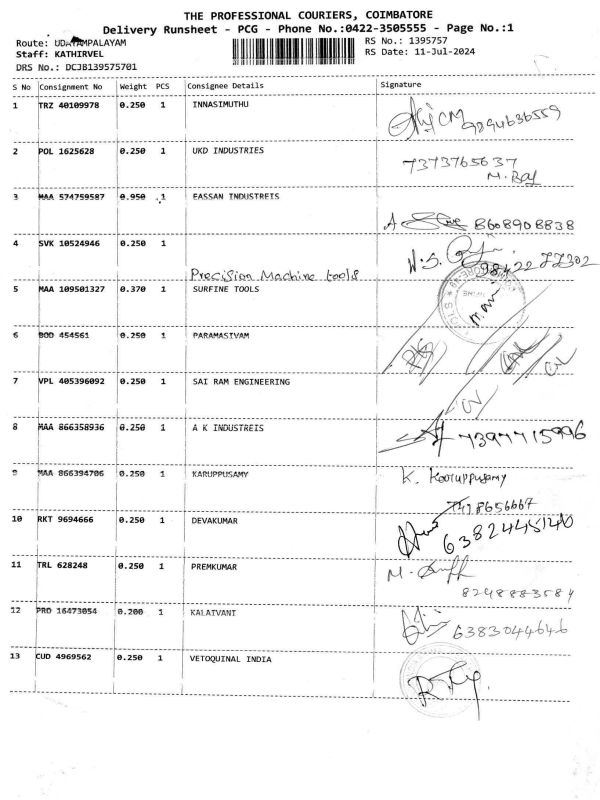 THE PROFESSIONAL COURIERS, COIMBATORE
Delivery Runsheet - PCG - Phone No.:0422-3505555 - Page No.:1
Route: UDAYAMPALAYAM
RS No.: 1395757
Staff: KATHIRVEL
RS Date: 11-Jul-2024
DRS No.: DCJB139575701
S No Consignment No Weight PCS Consignee Details Signature
1 TRZ 40109978 0.250 1 INNASIMUTHU
9894636559
2 POL 1625628 0.250 1 UKD INDUSTRIES
7373765637
M. Raj
3 MAA 574759587 0.950 1 EASSAN INDUSTREIS
A 8608908838
4 SVK 10524946 0.250 1
98422 22302
Precision Machine tools
5 MAA 109501327 0.370 1 SURFINE TOOLS
6 BOD 454561 0.250 1 PARAMASIVAM
7 VPL 405396092 0.250 1 SAI RAM ENGINEERING
8 MAA 866358936 0.250 1 A K INDUSTREIS
7397715996
9 MAA 866394706 0.250 1 KARUPPUSAMY
K. Karuppusamy
7418656667
10 RKT 9694666 0.250 1 DEVAKUMAR
6382445140
11 TRL 628248 0.250 1 PREMKUMAR
M.
8248883584
12 PRO 16473054 0.200 1 KALAIVANI
6383044646
13 CUD 4969562 0.250 1 VETOQUINAL INDIA